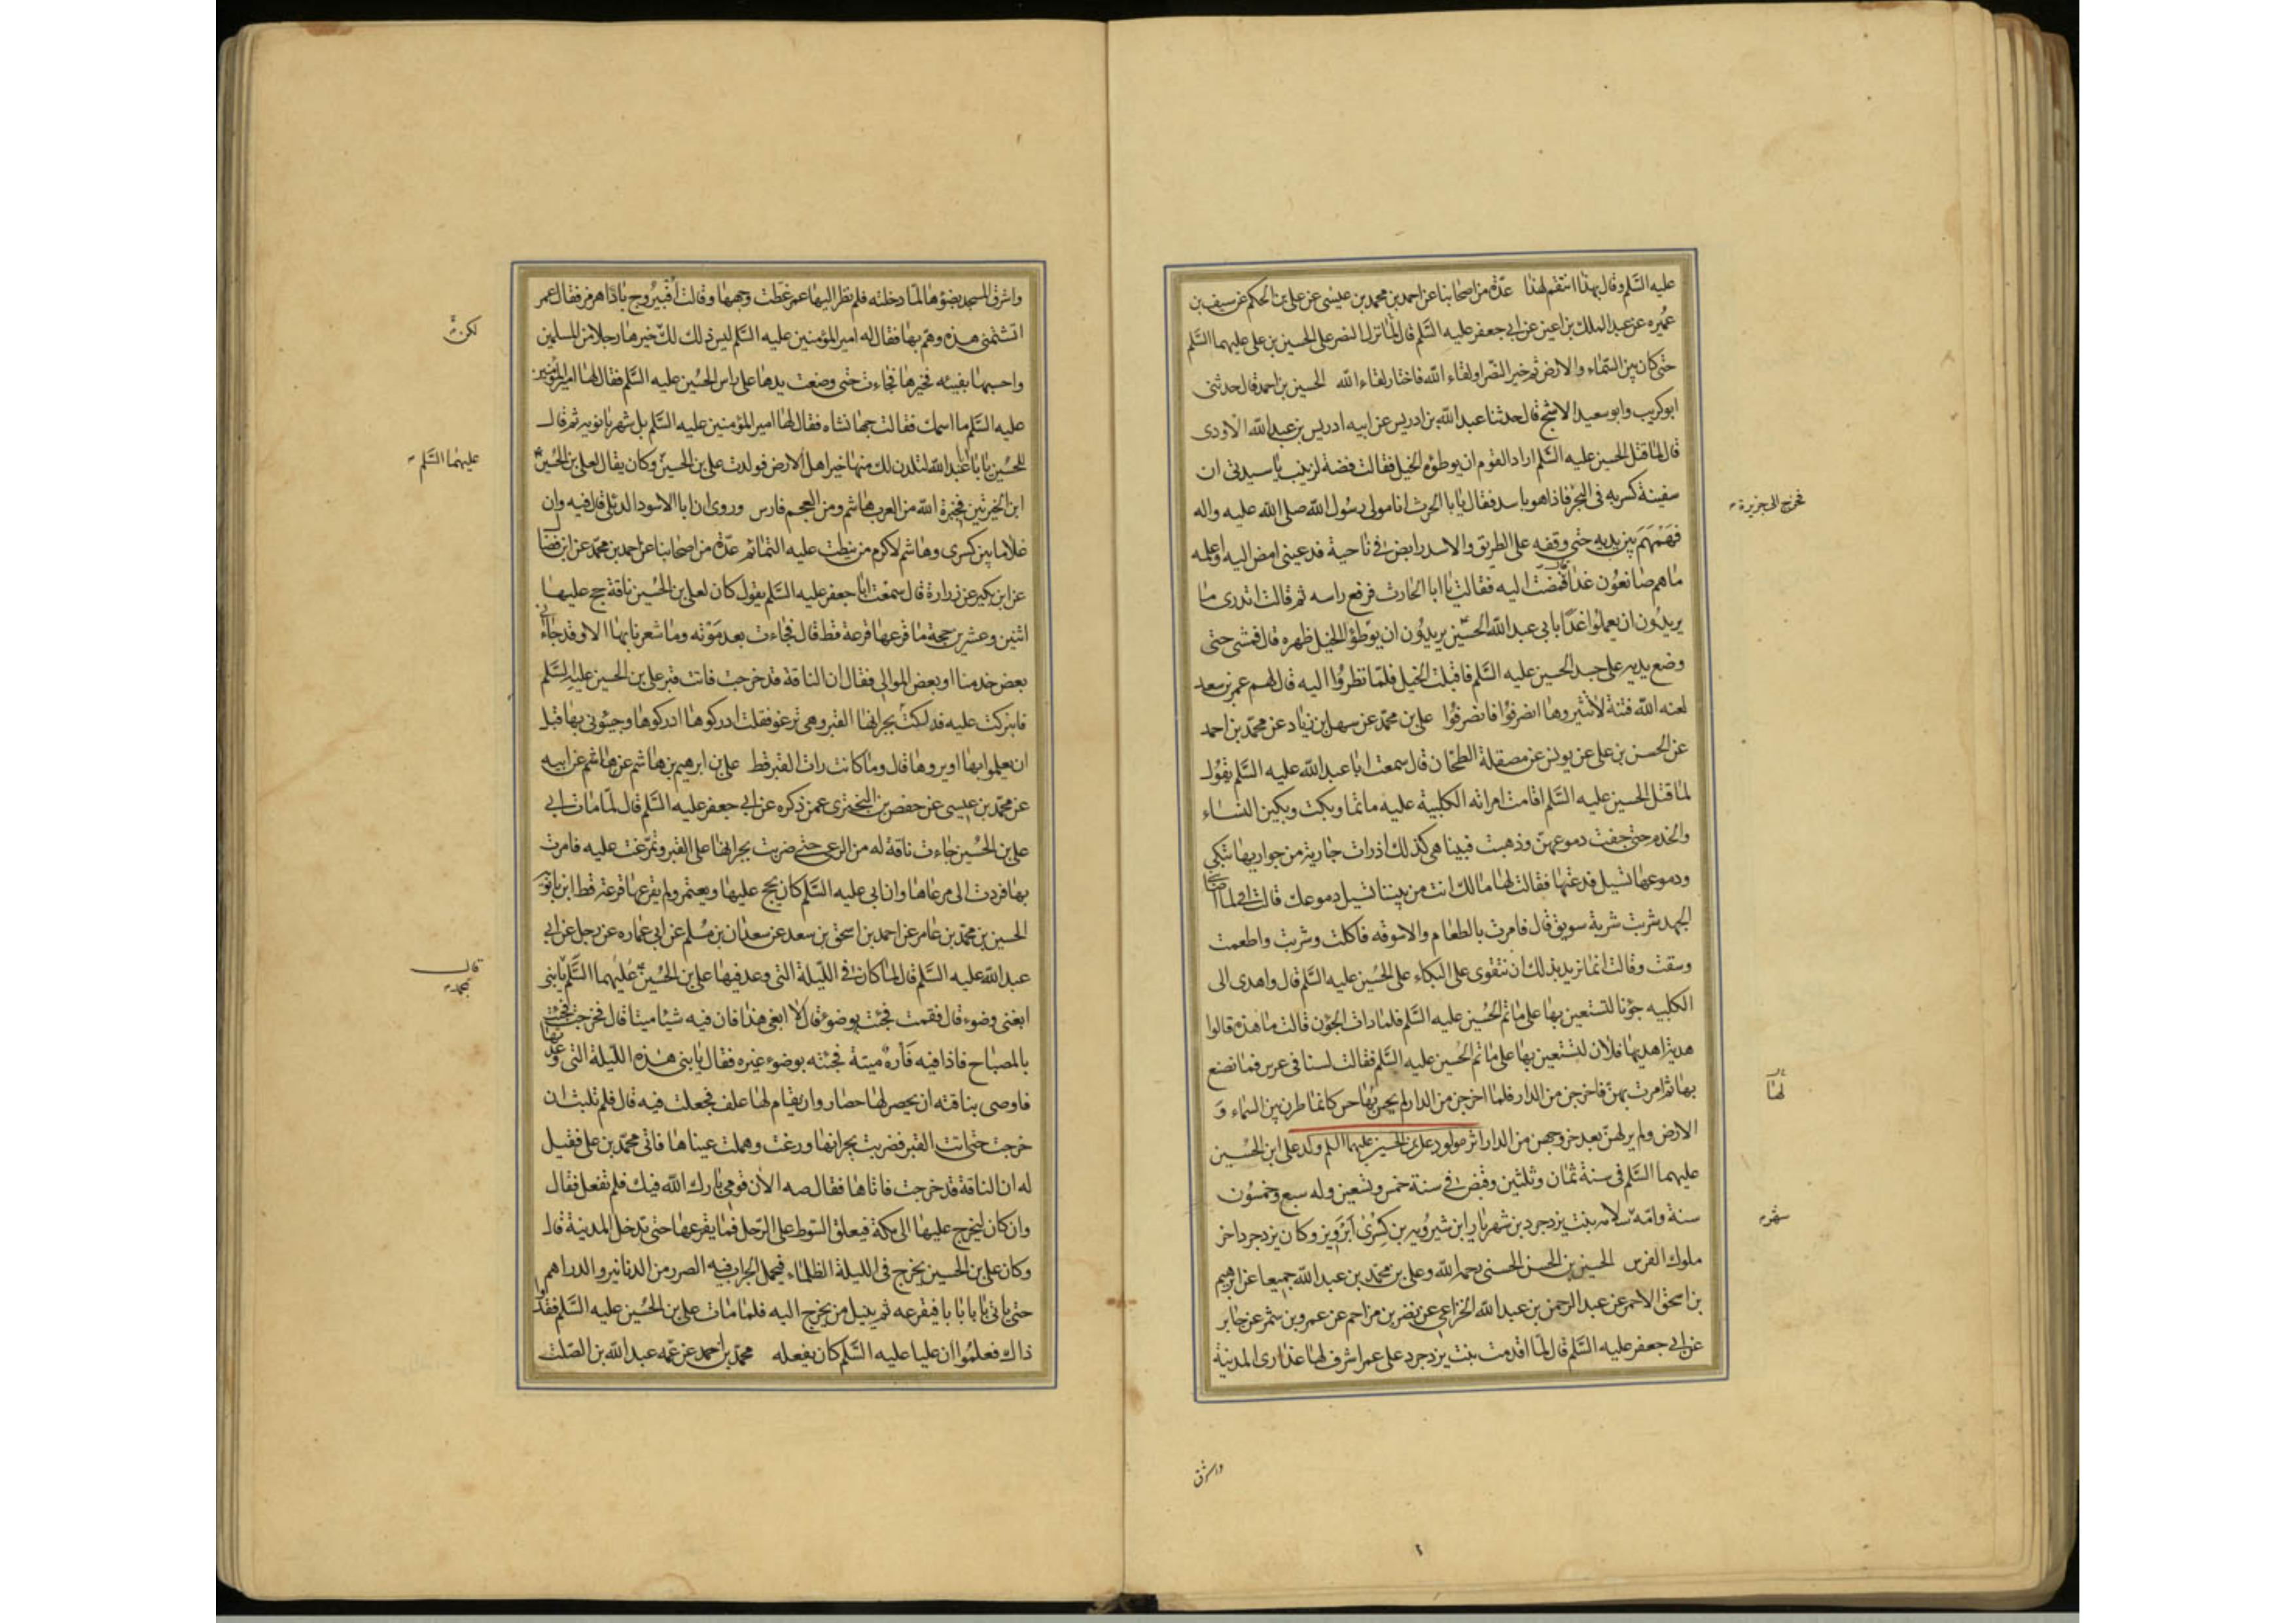 عليه السلم وقال بهذا انتقم لهذا عدة من اصحابنا عن احمد بن محمد بن عيسى عن على بن الحكم عن سيف بن
عميره عن عبد الملك بن اعين عن ابى جعفر عليه السلم قال لما نزل النصر على الحسين بن على عليهما السلم
حتى كان بين السماء والارض ثم خير النصر او لقاء الله فاختار لقاء الله الحسين بن احمد قال حدثنى
ابو كريب وابو سعيد الاشج قال حدثنا عبد الله بن ادريس عن ابيه ادريس بن عبد الله الاودى
قال لما قتل الحسين عليه السلم اراد القوم ان يوطؤه الخيل فقالت فضة لزينب يا سيدتى ان
سفينة كسر به فى البحر فاذا هو باسد فقال يا با الحرث انا مولى رسول الله صلى الله عليه واله
فخرج الى جزيرة
فهمهم بين يديه حتى وقفه على الطريق والاسد رابض فى ناحية فدعينى امض اليه واعلمه
ما هم صانعون غدا فمضت اليه فقالت يا ابا الحارث فرفع راسه ثم قالت اتدرى ما
يريدون ان يعملوا غدا بابى عبد الله الحسين يريدون ان يوطؤا الخيل ظهره قال فمشى حتى
وضع يديه على جسد الحسين عليه السلم فاقبلت الخيل فلما نظروا اليه قال لهم عمر بن سعد
لعنه الله فتنة لا تثيروها انصرفوا فانصرفوا على بن محمد عن سهل بن زياد عن محمد بن احمد
عن الحسن بن على عن يونس عن مصقلة الطحان قال سمعت ابا عبد الله عليه السلم يقول
لما قتل الحسين عليه السلم اقامت امراته الكلبية عليه ماتما وبكت وبكين النساء
والخدم حتى جفت دموعهن وذهبت فبينا هى كذلك اذ رات جارية من جواريها تبكى
ودموعها تسيل فدعتها فقالت لها مالك انت من بيننا تسيل دموعك قالت انى لما اصابنى
الجهد شربت شربة سويق قال فامرت بالطعام والاسوقه فاكلت وشربت واطعمت
وسقت وقالت انما نريد بذلك ان نتقوى على البكاء على الحسين عليه السلم قال واهدى الى
الكلبيه جؤنا لتستعين بها على ماتم الحسين عليه السلم فلما رات الجؤن قالت ما هذه قالوا
هدية اهديها فلان لتستعين بها على ماتم الحسين عليه السلم فقالت لسنا فى عرس فما نصنع
بها ثم امرت بهن فاخرجن من الدار فلما اخرجن من الدار لم يحس بها حس كانما طرن بين السماء و
لها
الارض ولم ير لهن بعد خروجهن من الدار اثر مولود على بن الحسين عليهما السلم ولد على ابن الحسين
عليهما السلم فى سنة ثمان وثلثين وقبض فى سنة خمس وتسعين وله سبع وخمسون
سنة وامه سلامه بنت يزدجرد بن شهريار ابن شيرويه بن كسرى ابرويز وكان يزدجرد اخر
ملوك الفرس الحسين بن الحسن الحسنى رحمه الله وعلى بن محمد بن عبد الله جميعا عن ابرهيم
بن اسحق الاحمر عن عبد الرحمن بن عبد الله الخزاعى عن نصر بن مزاحم عن عمرو بن شمر عن جابر
عن ابى جعفر عليه السلم قال لما اقدمت بنت يزدجرد على عمر اشرف لها عذارى المدينة
واشرق
واشرق المسجد بضوؤها لما دخلته فلم نظر اليها عمر غطت وجهها وقالت اف بيروج بادا هرمز فقال عمر
اتشتمنى هذه وهم بها فقال له امير المؤمنين عليه السلم ليس ذلك لك خيرها رجلا من المسلمين
لكن
واحسبها بفيئه فخيرها فجاءت حتى وضعت يدها على راس الحسين عليه السلم فقال لها امير المؤمنين
عليه السلم ما اسمك فقالت جهانشاه فقال لها امير المؤمنين عليه السلم بل شهربانويه ثم قال
للحسين يا با عبد الله لتلدن لك منها خير اهل الارض فولدت على بن الحسين وكان يقال لعلى بن الحسين
عليهما السلم
ابن الخيرتين فخيرة الله من العرب هاشم ومن العجم فارس وروى ان ابا الاسود الدئلى قال فيه وان
غلاما بين كسرى وهاشم لاكرم من نيطت عليه التمائم عدة من اصحابنا عن احمد بن محمد عن ابن فضا
عن ابن بكير عن زرارة قال سمعت ابا جعفر عليه السلم يقول كان لعلى ابن الحسين ناقة حج عليها
اثنين وعشرين حجة ما قرعها قرعة قط قال فجاءت بعد موته وما شعرنا بها الا وقد جاءنى
بعض خدمنا او بعض الموالى فقال ان الناقة قد خرجت فاتت قبر على بن الحسين عليه السلم
فابتركت عليه فدلكت بجرانها القبر وهى ترغو فقلت ادركوها ادركوها وجيئونى بها قبل
ان يعملوا بها او يروها قال وما كانت رات القبر قط على بن ابرهيم بن هاشم عن هاشم عن ابيه
عن محمد بن عيسى عن حفص بن البخترى عمن ذكره عن ابى جعفر عليه السلم قال لما مات ابى
على بن الحسين جاءت ناقة له من الرعى حتى ضربت بجرانها على القبر وتمرغت عليه فامرت
بها فردت الى مرعاها وان ابى عليه السلم كان يحج عليها ويعتمر ولم يقرعها قرعة قط ابن بابويه
الحسين بن محمد بن عامر عن احمد بن اسحق بن سعد عن سعدان بن مسلم عن ابى عماره عن رجل عن ابى
عبد الله عليه السلم قال لما كان فى الليلة التى وعد فيها على بن الحسين عليهما السلم يا بنى
قال
لمحمد
ابغنى وضوء قال فقمت فجئت بوضوء قال لا ابغى هذا فان فيه شيئا ميتا قال فخرجت فجئت
بالمصباح فاذا فيه فارة ميتة فجئته بوضوء غيره فقال يا بنى هذه الليلة التى وعدتها
فاوصى بناقته ان يحصر لها حصار وان يقام لها علف فجعلت فيه قال فلم تلبث ان
خرجت حتى اتت القبر فضربت بجرانها ورغت وهملت عيناها فاتى محمد بن على فقيل
له ان الناقة قد خرجت فاتاها فقال صه الان قومى بارك الله فيك فلم تفعل فقال
وان كان ليخرج عليها الى مكة فيعلق السوط على الرحل فما يقرعها حتى تدخل المدينة قال
وكان على بن الحسين يخرج فى الليلة الظلماء فيحمل الجراب فيه الصرر من الدنانير والدراهم
حتى ياتى بابا بابا فيقرعه ثم ينيل من يخرج اليه فلما مات على بن الحسين عليه السلم فقدوا
ذاك فعلموا ان عليا عليه السلم كان يفعله محمد بن احمد عن عمه عبد الله بن الصلت